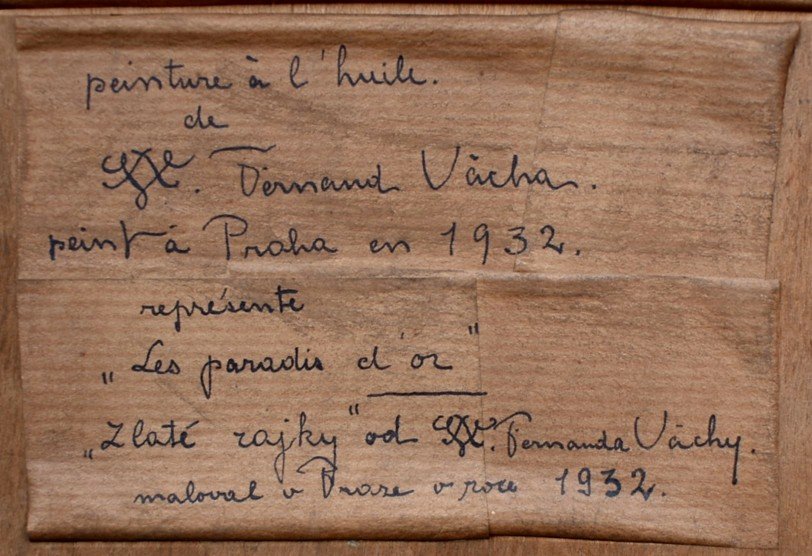 peinture à l'huile.
de
Fernand Vácha.
peint à Praha en 1932.
représente
„Les paradis d'or"
„Zlaté rajky" od Fernanda Váchy.
maloval v Praze v roce 1932.